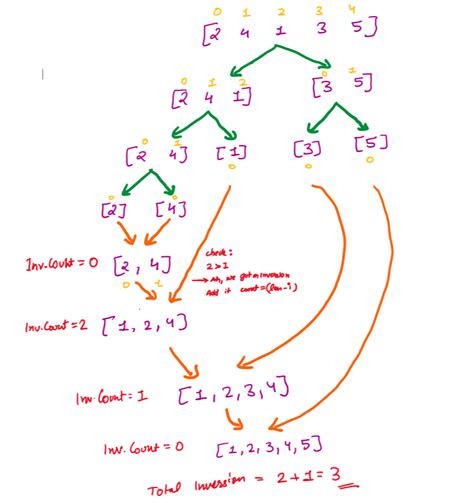 0 1 2 3 4
[2 4 1 3 5]
0 1 2 0 1
[2 4 1] [3 5]
0 1
[2 4] [1] [3] [5]
0 0 0
0 0
[2] [4]
check:
2>1
Inv.Count = 0 [2, 4] → Ah, we got an inversion
0 1 Add it count=(len-i)
Inv.Count = 2 [1, 2, 4]
Inv.Count = 1 [1, 2, 3, 4]
Inv.Count = 0 [1, 2, 3, 4, 5]
Total Inversion = 2+1 = 3